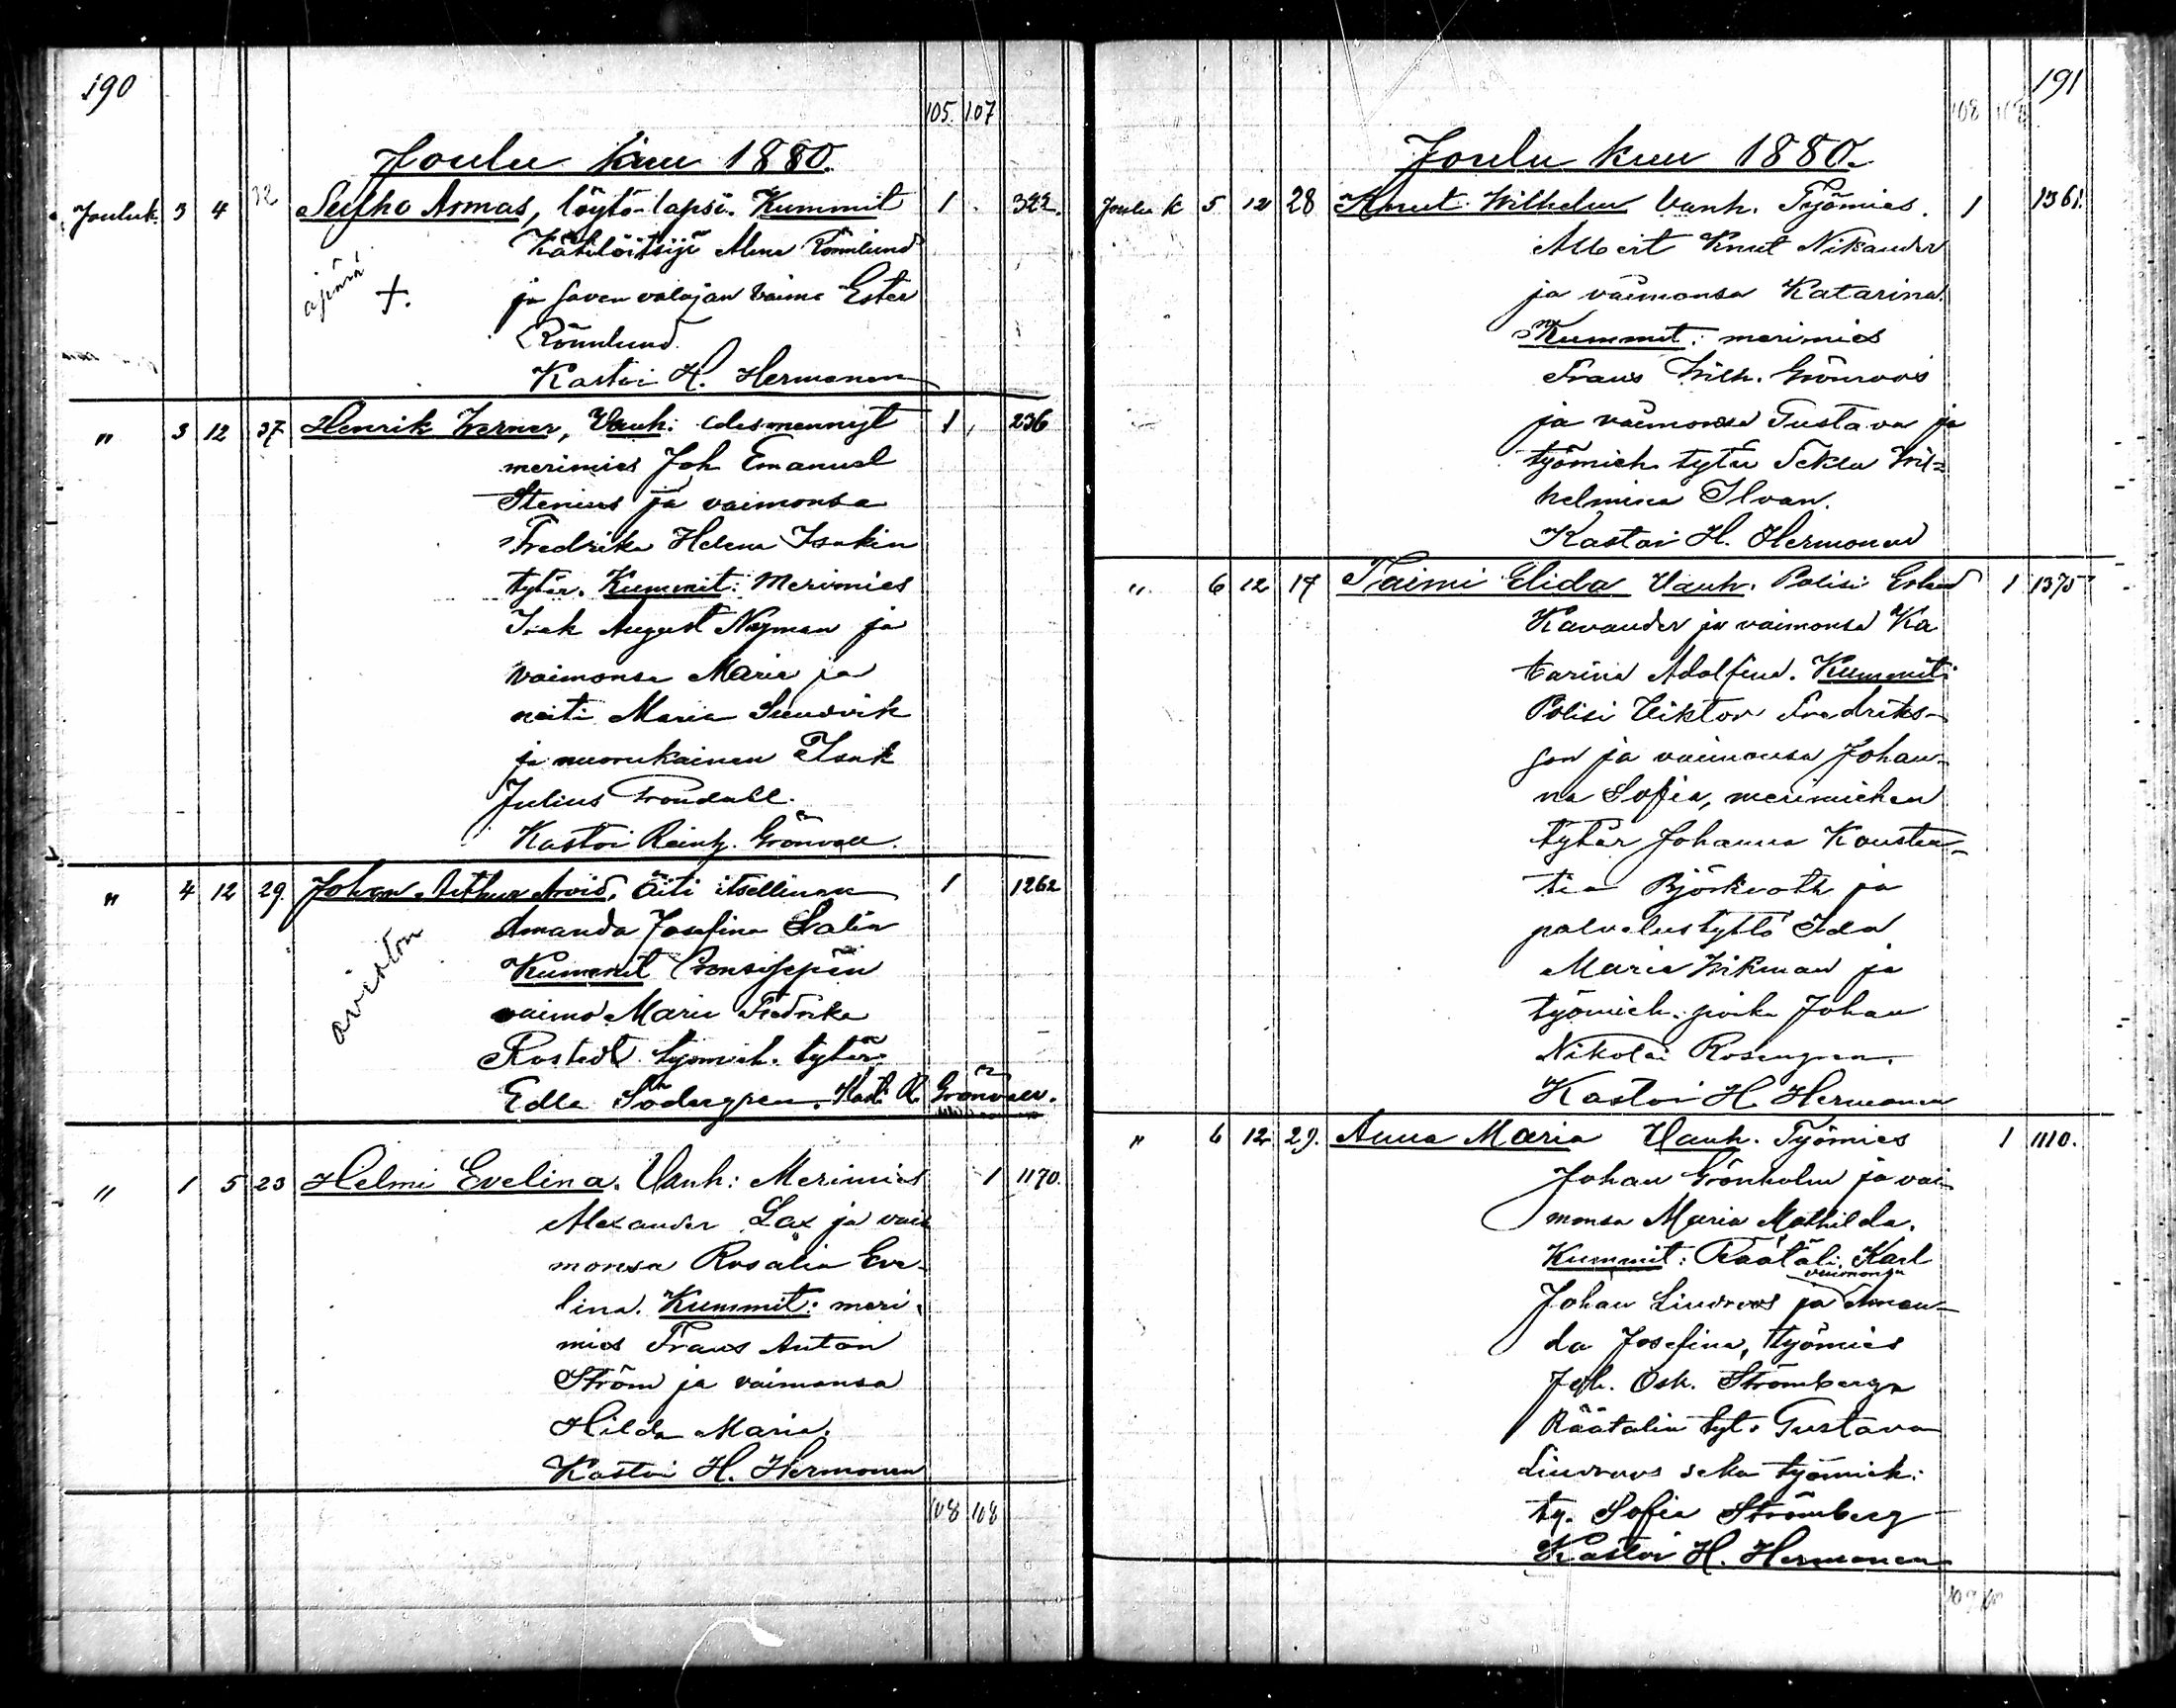 190
105. 107
Joulu kuu 1880.
Jouluk. 3 4 32 Armas, löytö-lapsi. Kummit 1 322.
Kätilöitsijä Rönnlund
ja saven valajan vaimo Ester
+.
Rönnlund.
Kastoi H. Hermonen
" 3 12 37 Henrik Werner, Vanh: edesmennyt 1 236
merimies Joh Emanuel
Stenius ja vaimonsa
Fredrika Helena Isakin
tytär. Kummit: Merimies
Isak August Nyman ja
vaimonsa Maria ja
neiti Maria Sundvik
ja nuorukainen Isak
Julius
Kastoi Reinh. Grönvall.
" 4 12 29. Johan Arthur Arvid. Äiti itsellinen 1 1262
Amanda Josefina Salin
avioton
Kummit
vaimo Maria Fredrika
Rostedt työmieh. tytär
Edla Södergren. Kast. R. Grönvall.
" 1 5 23 Helmi Evelina. Vanh: Merimies 1 1170.
Alexander Lax ja vai
monsa Rosalia Eve-
lina. Kummit: meri-
mies Frans Anton
Ström ja vaimonsa
Hilda Maria.
Kastoi H. Hermonen
108 108
191
108
Joulu kuu 1880.
Joulu k 5 12 28 Knut Wilhelm Vanh. Työmies. 1 1361.
Albert Knut Nikander
ja vaimonsa Katarina.
Kummit: merimies
Frans Wilh. Grönroos
ja vaimonsa Gustava ja
työmieh. tytär Tekla Wil=
helmina Ilvan.
Kastoi H. Hermonen
" 6 12 17 Taimi Elida Vanh. Polisi 1 1375
Kavander ja vaimonsa Ka
tarina Adolfina. Kummit:
Polisi Viktor Fredriks-
son ja vaimonsa Johan-
na Sofia, merimiehen
tytär Johanna Konstan-
tia Björkroth ja
palvelustyttö Ida
Maria Wikman ja
työmieh. poika Johan
Nikolai Rosengren.
Kastoi H. Hermonen
" 6 12 29. Anna Maria Vanh. Työmies 1 1110.
Johan Grönholm ja vai-
monsa Maria Mathilda.
Kummit: Räätäli Karl
vaimonsa
Johan Lindroos ja Aman-
da Josefina, työmies
Joh. Osk. Strömberg
Räätälin tyt. Gustava
Lindroos seka työmieh.
ty. Sofia Strömberg
Kastoi H. Hermonen